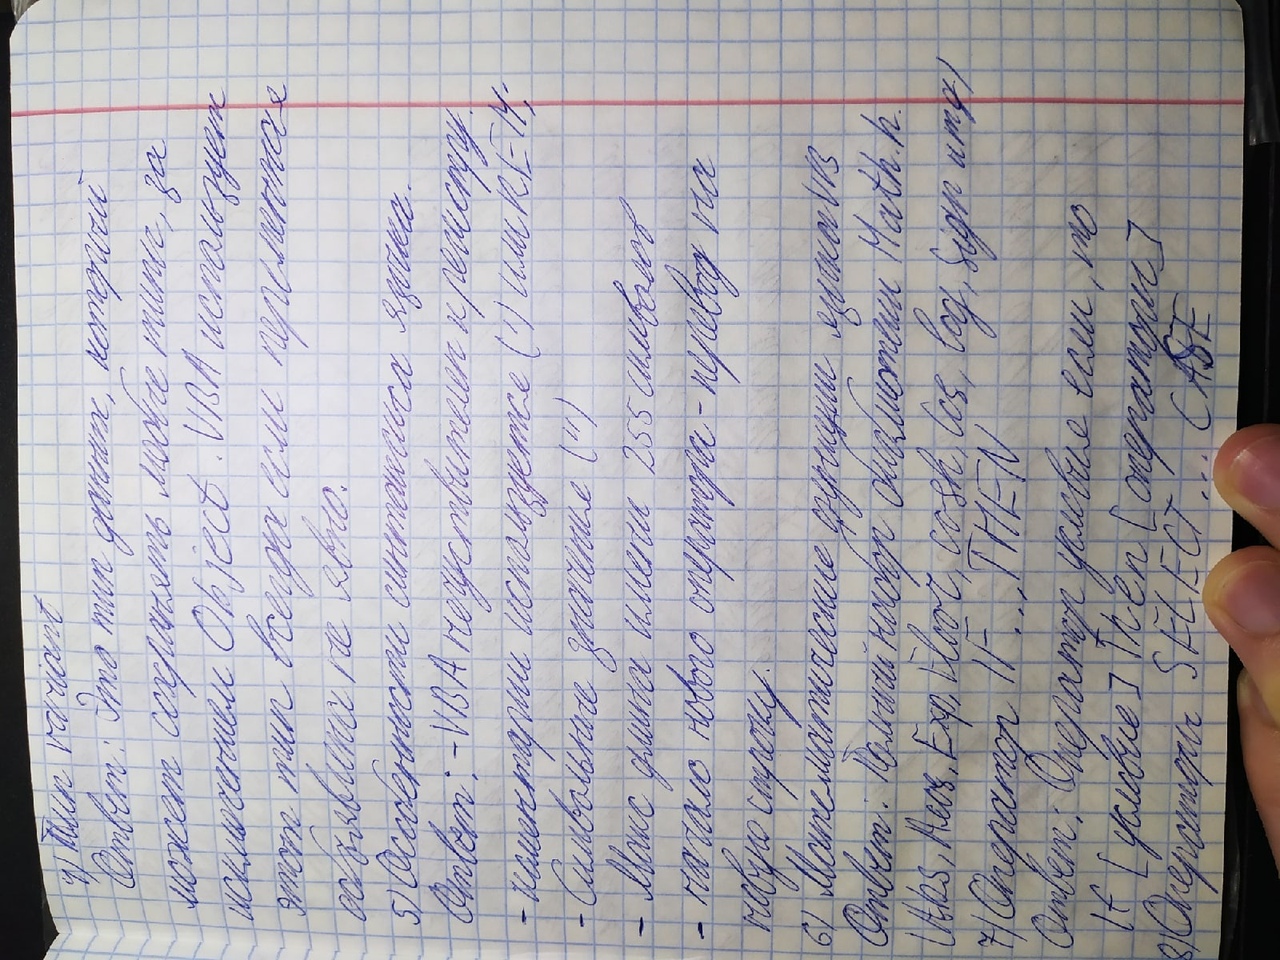 4) Тип variant
Ответ: Это тип данных, который
может сохранять любые типы, за
исключением Object. VBA использует
этот тип всегда если переменная
объявлена не явно.
5) Особенности синтаксиса языка.
Ответ: - VBA нечувствителен к регистру.
- комментарии используется (') или RETM;
- Символьные значение (")
- Макс длина имени 255 символов
- начало нового оператора - перевод на
новую строку.
6) Математические функции языка VB
Ответ: Полный набор библиотеки Math.h.
(Abs, Exp, cosh, cos, log, sign итд)
7) Оператор IF ... THEN
Ответ: Оператор условие если, то
IF [условие] Then [оператори]
8) Операторы SELECT ... CASE